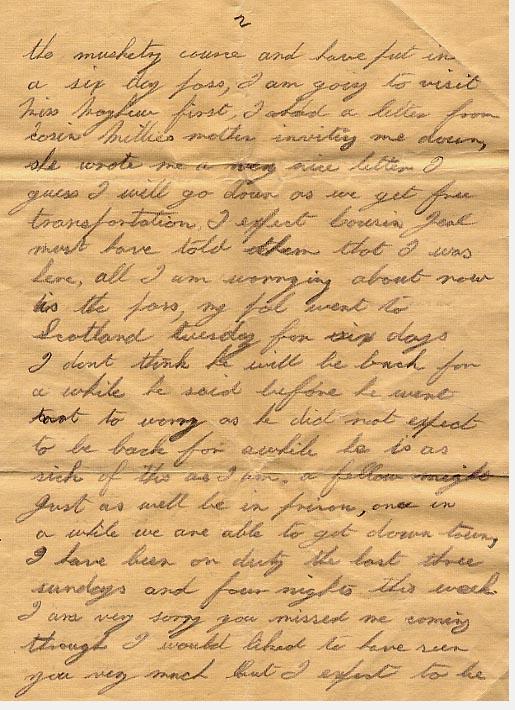 2
the muskety course and have put in
a six day pass, I am going to visit
Miss Mayhew first, I had a letter from
Cosin Millies mother inviting me down,
she wrote me a very nice letter I
guess I will go down as we get free
transportation, I expect Cousin
must have told them that I was
here, all I am worrying about now
is the pass, my pal went to
Scotland tuesday for six days
I dont think he will be back for
a while he said before he went
not to worry as he did not expect
to be back for awhile he is as
sick of this as I am, a fellow might
just as well be in prison, once in
a while we are able to get down town,
I have been on duty the last three
sundays and four nights this week.
I am very sorry you missed me coming
through I would liked to have seen
you very much But I expect to be